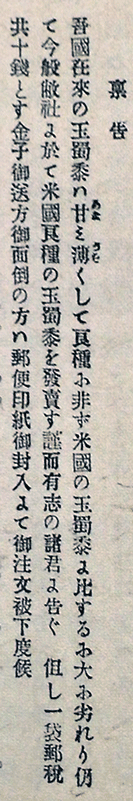 稟告
吾國在來の玉蜀黍ハ甘ミ薄くして良種に非ず米國の玉蜀黍に比するに大に劣れり仍
て今般敝社に於て米國良種の玉蜀黍を發賣す謹而有志の諸君に告ぐ 但し一袋郵税
共十錢とす金子御送方御面倒の方ハ郵便印紙御封入にて御注文被下度候